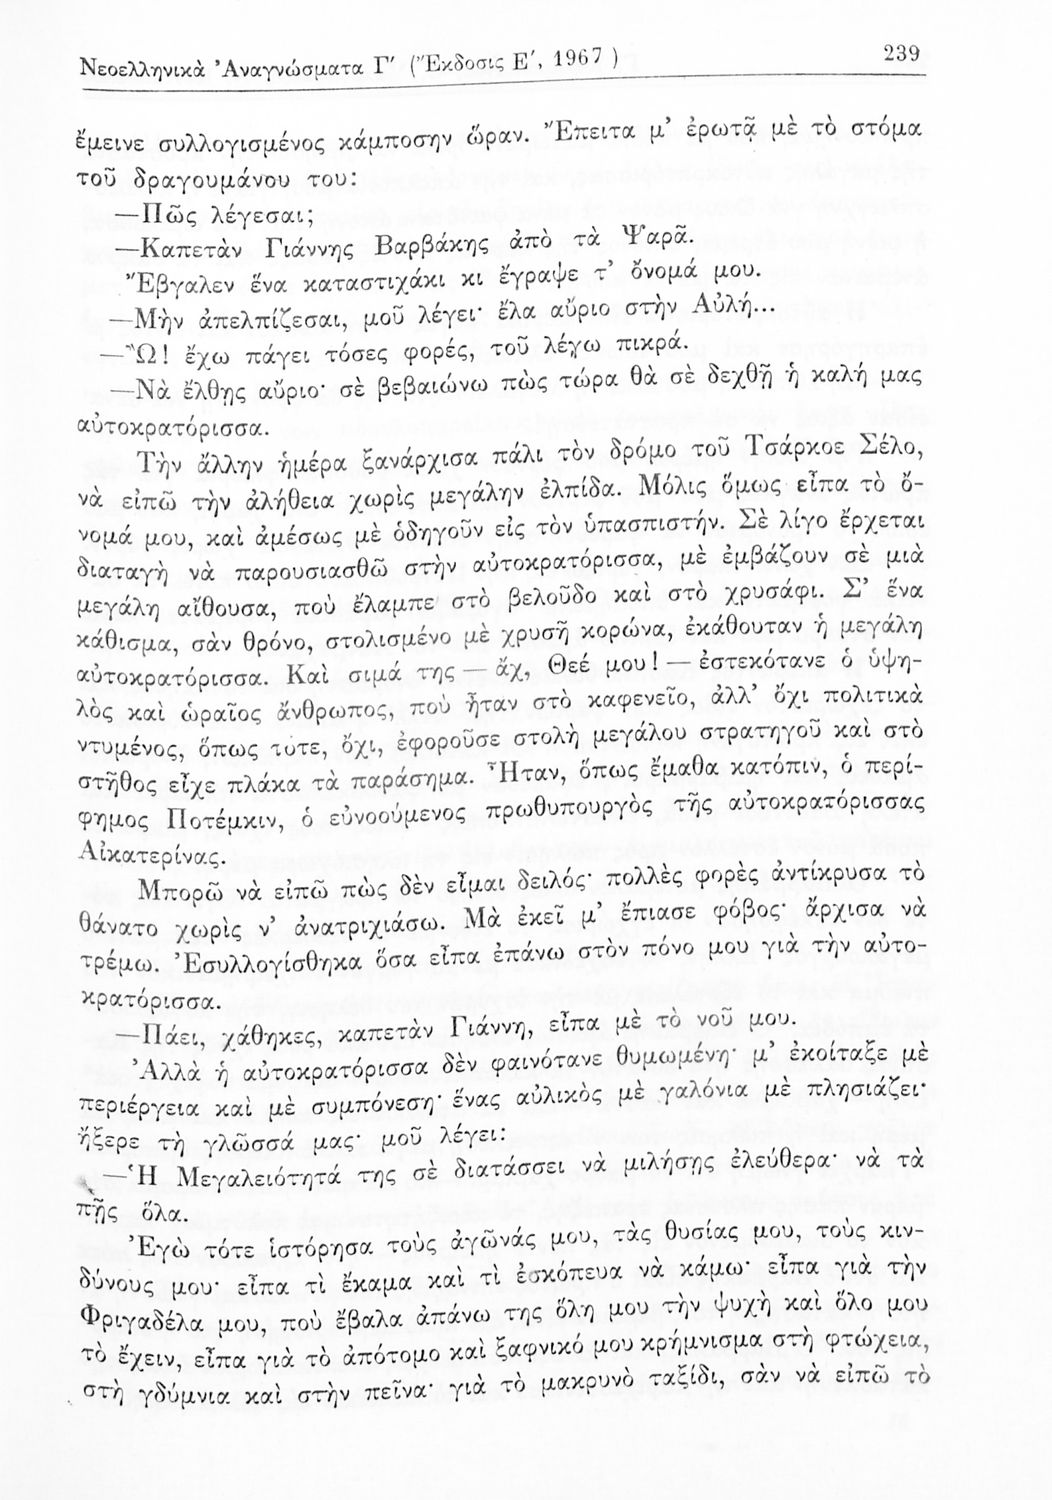 Νεοελληνικὰ Ἀναγνώσματα Γ′ (Ἔκδοσις Ε′, 1967 )
239
ἔμεινε συλλογισμένος κάμποσην ὥραν. Ἔπειτα μ’ ἐρωτᾷ μὲ τὸ στόμα
τοῦ δραγουμάνου του:
—Πῶς λέγεσαι;
—Καπετὰν Γιάννης Βαρβάκης ἀπὸ τὰ Ψαρᾶ.
Ἔβγαλεν ἕνα καταστιχάκι κι ἔγραψε τ’ ὄνομά μου.
—Μὴν ἀπελπίζεσαι, μοῦ λέγει· ἔλα αὔριο στὴν Αὐλή...
—Ὢ! ἔχω πάγει τόσες φορές, τοῦ λέγω πικρά.
—Νὰ ἔλθῃς αὔριο· σὲ βεβαιώνω πὼς τώρα θὰ σὲ δεχθῇ ἡ καλή μας
αὐτοκρατόρισσα.
Τὴν ἄλλην ἡμέρα ξανάρχισα πάλι τὸν δρόμο τοῦ Τσάρκοε Σέλο,
νὰ εἰπῶ τὴν ἀλήθεια χωρὶς μεγάλην ἐλπίδα. Μόλις ὅμως εἶπα τὸ ὄ-
νομά μου, καὶ ἀμέσως μὲ ὁδηγοῦν εἰς τὸν ὑπασπιστήν. Σὲ λίγο ἔρχεται
διαταγὴ νὰ παρουσιασθῶ στὴν αὐτοκρατόρισσα, μὲ ἐμβάζουν σὲ μιὰ
μεγάλη αἴθουσα, ποὺ ἔλαμπε στὸ βελοῦδο καὶ στὸ χρυσάφι. Σ’ ἕνα
κάθισμα, σὰν θρόνο, στολισμένο μὲ χρυσῆ κορώνα, ἐκάθουταν ἡ μεγάλη
αὐτοκρατόρισσα. Καὶ σιμά της — ἄχ, Θεέ μου! — ἐστεκότανε ὁ ὑψη-
λὸς καὶ ὡραῖος ἄνθρωπος, ποὺ ἦταν στὸ καφενεῖο, ἀλλ’ ὄχι πολιτικὰ
ντυμένος, ὅπως τότε, ὄχι, ἐφοροῦσε στολὴ μεγάλου στρατηγοῦ καὶ στὸ
στῆθος εἶχε πλάκα τὰ παράσημα. Ἦταν, ὅπως ἔμαθα κατόπιν, ὁ περί-
φημος Ποτέμκιν, ὁ εὐνοούμενος πρωθυπουργὸς τῆς αὐτοκρατόρισσας
Αἰκατερίνας.
Μπορῶ νὰ εἰπῶ πὼς δὲν εἶμαι δειλός· πολλὲς φορὲς ἀντίκρυσα τὸ
θάνατο χωρὶς ν’ ἀνατριχιάσω. Μὰ ἐκεῖ μ’ ἔπιασε φόβος· ἄρχισα νὰ
τρέμω. Ἐσυλλογίσθηκα ὅσα εἶπα ἐπάνω στὸν πόνο μου γιὰ τὴν αὐτο-
κρατόρισσα.
—Πάει, χάθηκες, καπετὰν Γιάννη, εἶπα μὲ τὸ νοῦ μου.
Ἀλλὰ ἡ αὐτοκρατόρισσα δὲν φαινότανε θυμωμένη· μ’ ἐκοίταξε μὲ
περιέργεια καὶ μὲ συμπόνεση· ἕνας αὐλικὸς μὲ γαλόνια μὲ πλησιάζει·
ἤξερε τὴ γλῶσσά μας· μοῦ λέγει:
—Ἡ Μεγαλειότητά της σὲ διατάσσει νὰ μιλήσῃς ἐλεύθερα· νὰ τὰ
πῇς ὅλα.
Ἐγὼ τότε ἱστόρησα τοὺς ἀγῶνάς μου, τὰς θυσίας μου, τοὺς κιν-
δύνους μου· εἶπα τὶ ἔκαμα καὶ τὶ ἐσκόπευα νὰ κάμω· εἶπα γιὰ τὴν
Φριγαδέλα μου, ποὺ ἔβαλα ἀπάνω της ὅλη μου τὴν ψυχὴ καὶ ὅλο μου
τὸ ἔχειν, εἶπα γιὰ τὸ ἀπότομο καὶ ξαφνικό μου κρήμνισμα στὴ φτώχεια,
στὴ γδύμνια καὶ στὴν πεῖνα· γιὰ τὸ μακρυνὸ ταξίδι, σὰν νὰ εἰπῶ τὸ